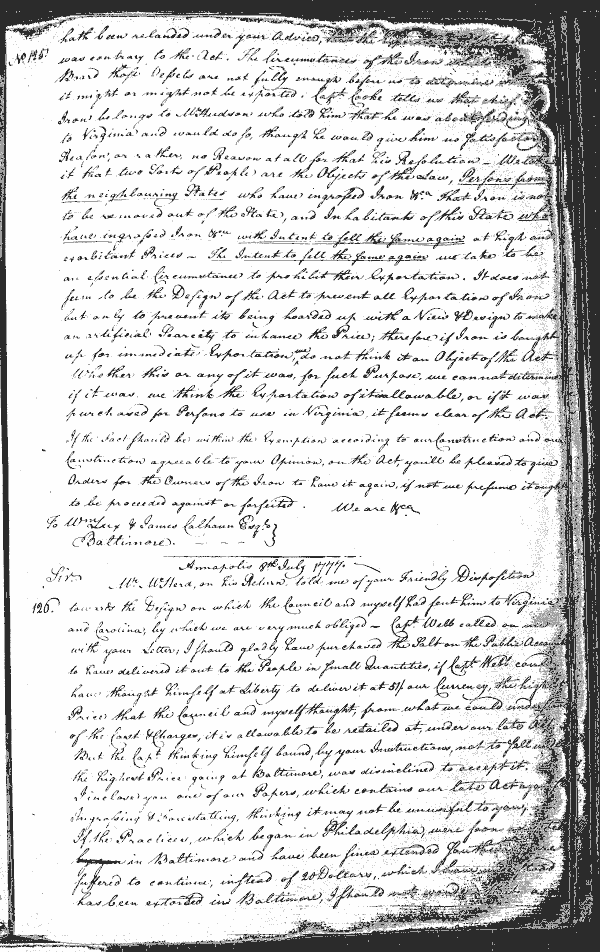 hath been relanded under your Advice,
No 125. was contrary to the Act. The Circumstances of the Iron
Board those Vessels are not fully enough before us to determine
it might or might not be exported. Capt. Cooke tells us that chief
Iron belongs to Mr Hudson who told him that he was about sending
to Virginia and would do so, though he would give him no Satisfactory
Reason, or rather, no Reason at all for that his Resolution – We take
it that two Sorts of People are the Objects of the Law, Persons from
the neighbouring States who have ingrossed Iron &ca That Iron is not
to be removed out of the State, and Inhabitants of this State who
have ingrossed Iron &ca with Intent to sell the same again at high and
exorbitant Prices – The Intent to sell the same again we take to be
an essential Circumstance to prohibit their Exportation. It does not
seem to be the Design of the Act to prevent all Exportation of Iron
but only to prevent its being hoarded up with a View & Design to make
an artificial Scarcity to inhance the Price; therefore if Iron is bought
up for immediate Exportation, we do not think it an Object of the Act
Whether this or any of it was, for such Purpose, we cannot determine
if it was, we think the Exportation of it is allowable, or if it was
purchased for Persons to use in Virginia, it seems clear of the Act.
If the Fact should be within the Exemption according to our Construction and our
Construction agreeable to your Opinion, on the Act, you'll be pleased to give
Orders for the Owners of the Iron to have it again, if not we presume it ought
to be proceeded against or forfeited. We are &ca
To Wm Lux & James Calhoun Esqrs }
Baltimore.
Annapolis 8th July 1777.
Sir Mr McHerd, on his Return, told me of your Friendly Disposition
126. towards the Design on which the Council and myself had sent him to Virginia
and Carolina, by which we are very much obliged – Capt Webb called on
with your Letter; I should gladly have purchased the Salt on the Public Account
to have delivered it out to the People in small Quantities, if Capt Webb could
have thought himself at Liberty to deliver it at 5/ our Currency, the highest
Price that the Council and myself thought, from what we could understand
of the Cost & Charges, it is allowable to be retailed at, under our late Act
But the Capt thinking himself bound, by your Instructions, not to sell under
the highest Price going at Baltimore, was disinclined to accept it.
I inclose you one of our Papers, which contains our late Act against
Ingrossing & Forestalling, thinking it may not be unuseful to you;
If the Practices, which began in Philadelphia, were soon
in Baltimore and have been since extended further
suffered to continue, instead of 20 Dollars, which I have
has been extorted in Baltimore, I should not